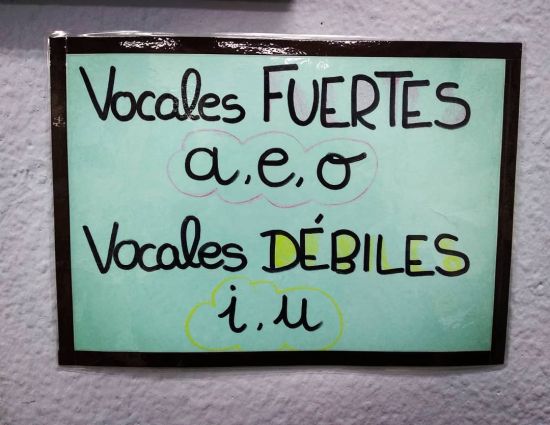 Vocales FUERTES
a, e, o
Vocales DÉBILES
i, u